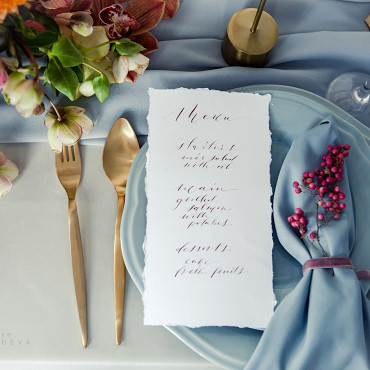 Menu
starters
mix salad
with oil
main
grilled
salmon
with
potatoes
desserts
cake
free fruits
DEVA